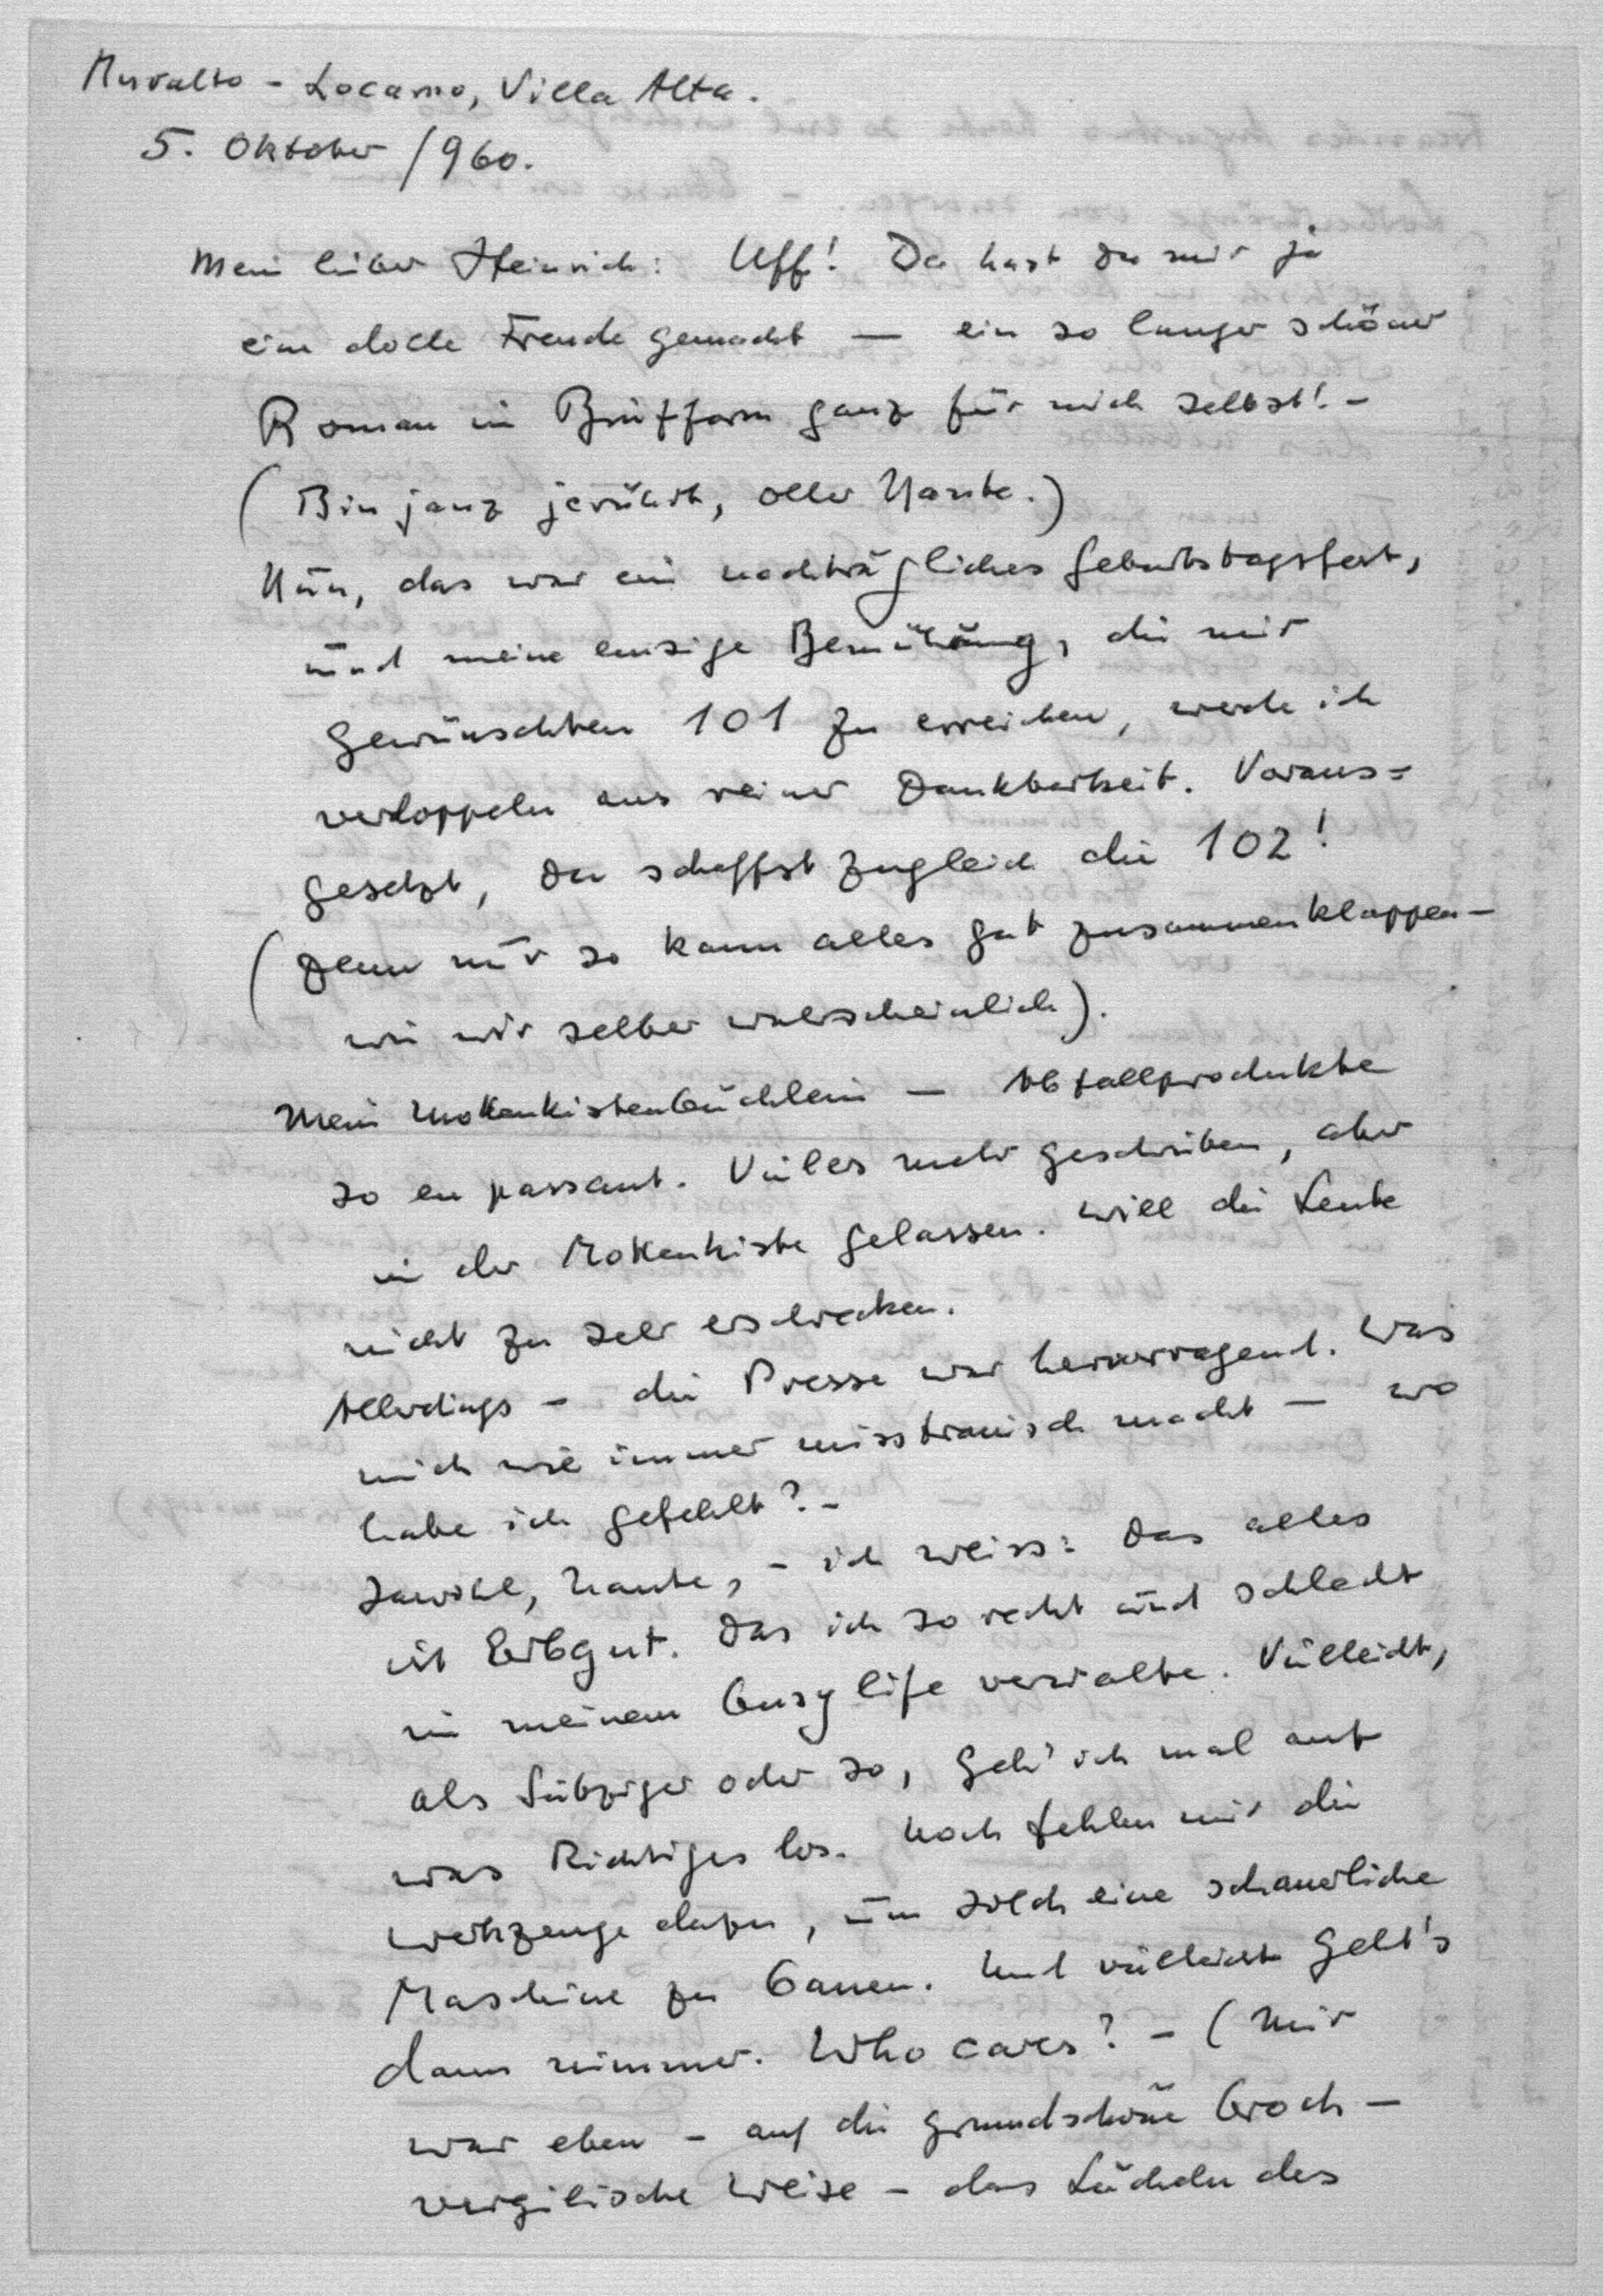 Muralto - Locarno, Villa Alta.
5. Oktober 1960.
Mein lieber Heinrich: Uff! Da hast du mir ja
eine dolle Freude gemacht — ein so langer schöner
Roman in Briefform ganz für mich selbst! -
(Bin janz jerührt, oller Nante.)
Nun, das war ein nachträgliches Geburtstagsfest,
und meine emsige Bemühung, die mir
gewünschten 101 zu erreichen, werde ich
verdoppeln aus reiner Dankbarkeit. Voraus=
gesetzt, du schaffst zugleich die 102!
(Denn nur so kann alles gut zusammenklappen —
wie wir selber warscheinlich).
Mein Mottenkistenbüchlein — Abfallprodukte
so en passant. Vieles mehr geschrieben, aber
in der Mottenkiste gelassen. Will die Leute
nicht zu sehr erschrecken.
Allerdings - die Presse war hervorragend. Was
mich wie immer misstrauisch macht — wo
habe ich gefehlt? -
Jawohl, Nante, - ich weiss: Das alles
ist Erbgut. Das ich so recht und schlecht
in meinem busy life verwalte. Vielleicht,
als Siebziger oder so, geh' ich mal auf
was Richtiges los. Noch fehlen mir die
Werkzeuge dazu, um solch eine schauerliche
Maschine zu bauen. Und vielleicht geht's
dann nimmer. Who cares? - (Mir
war eben - auf die grundschöne broch -
vergilische Weise - das Lächeln des